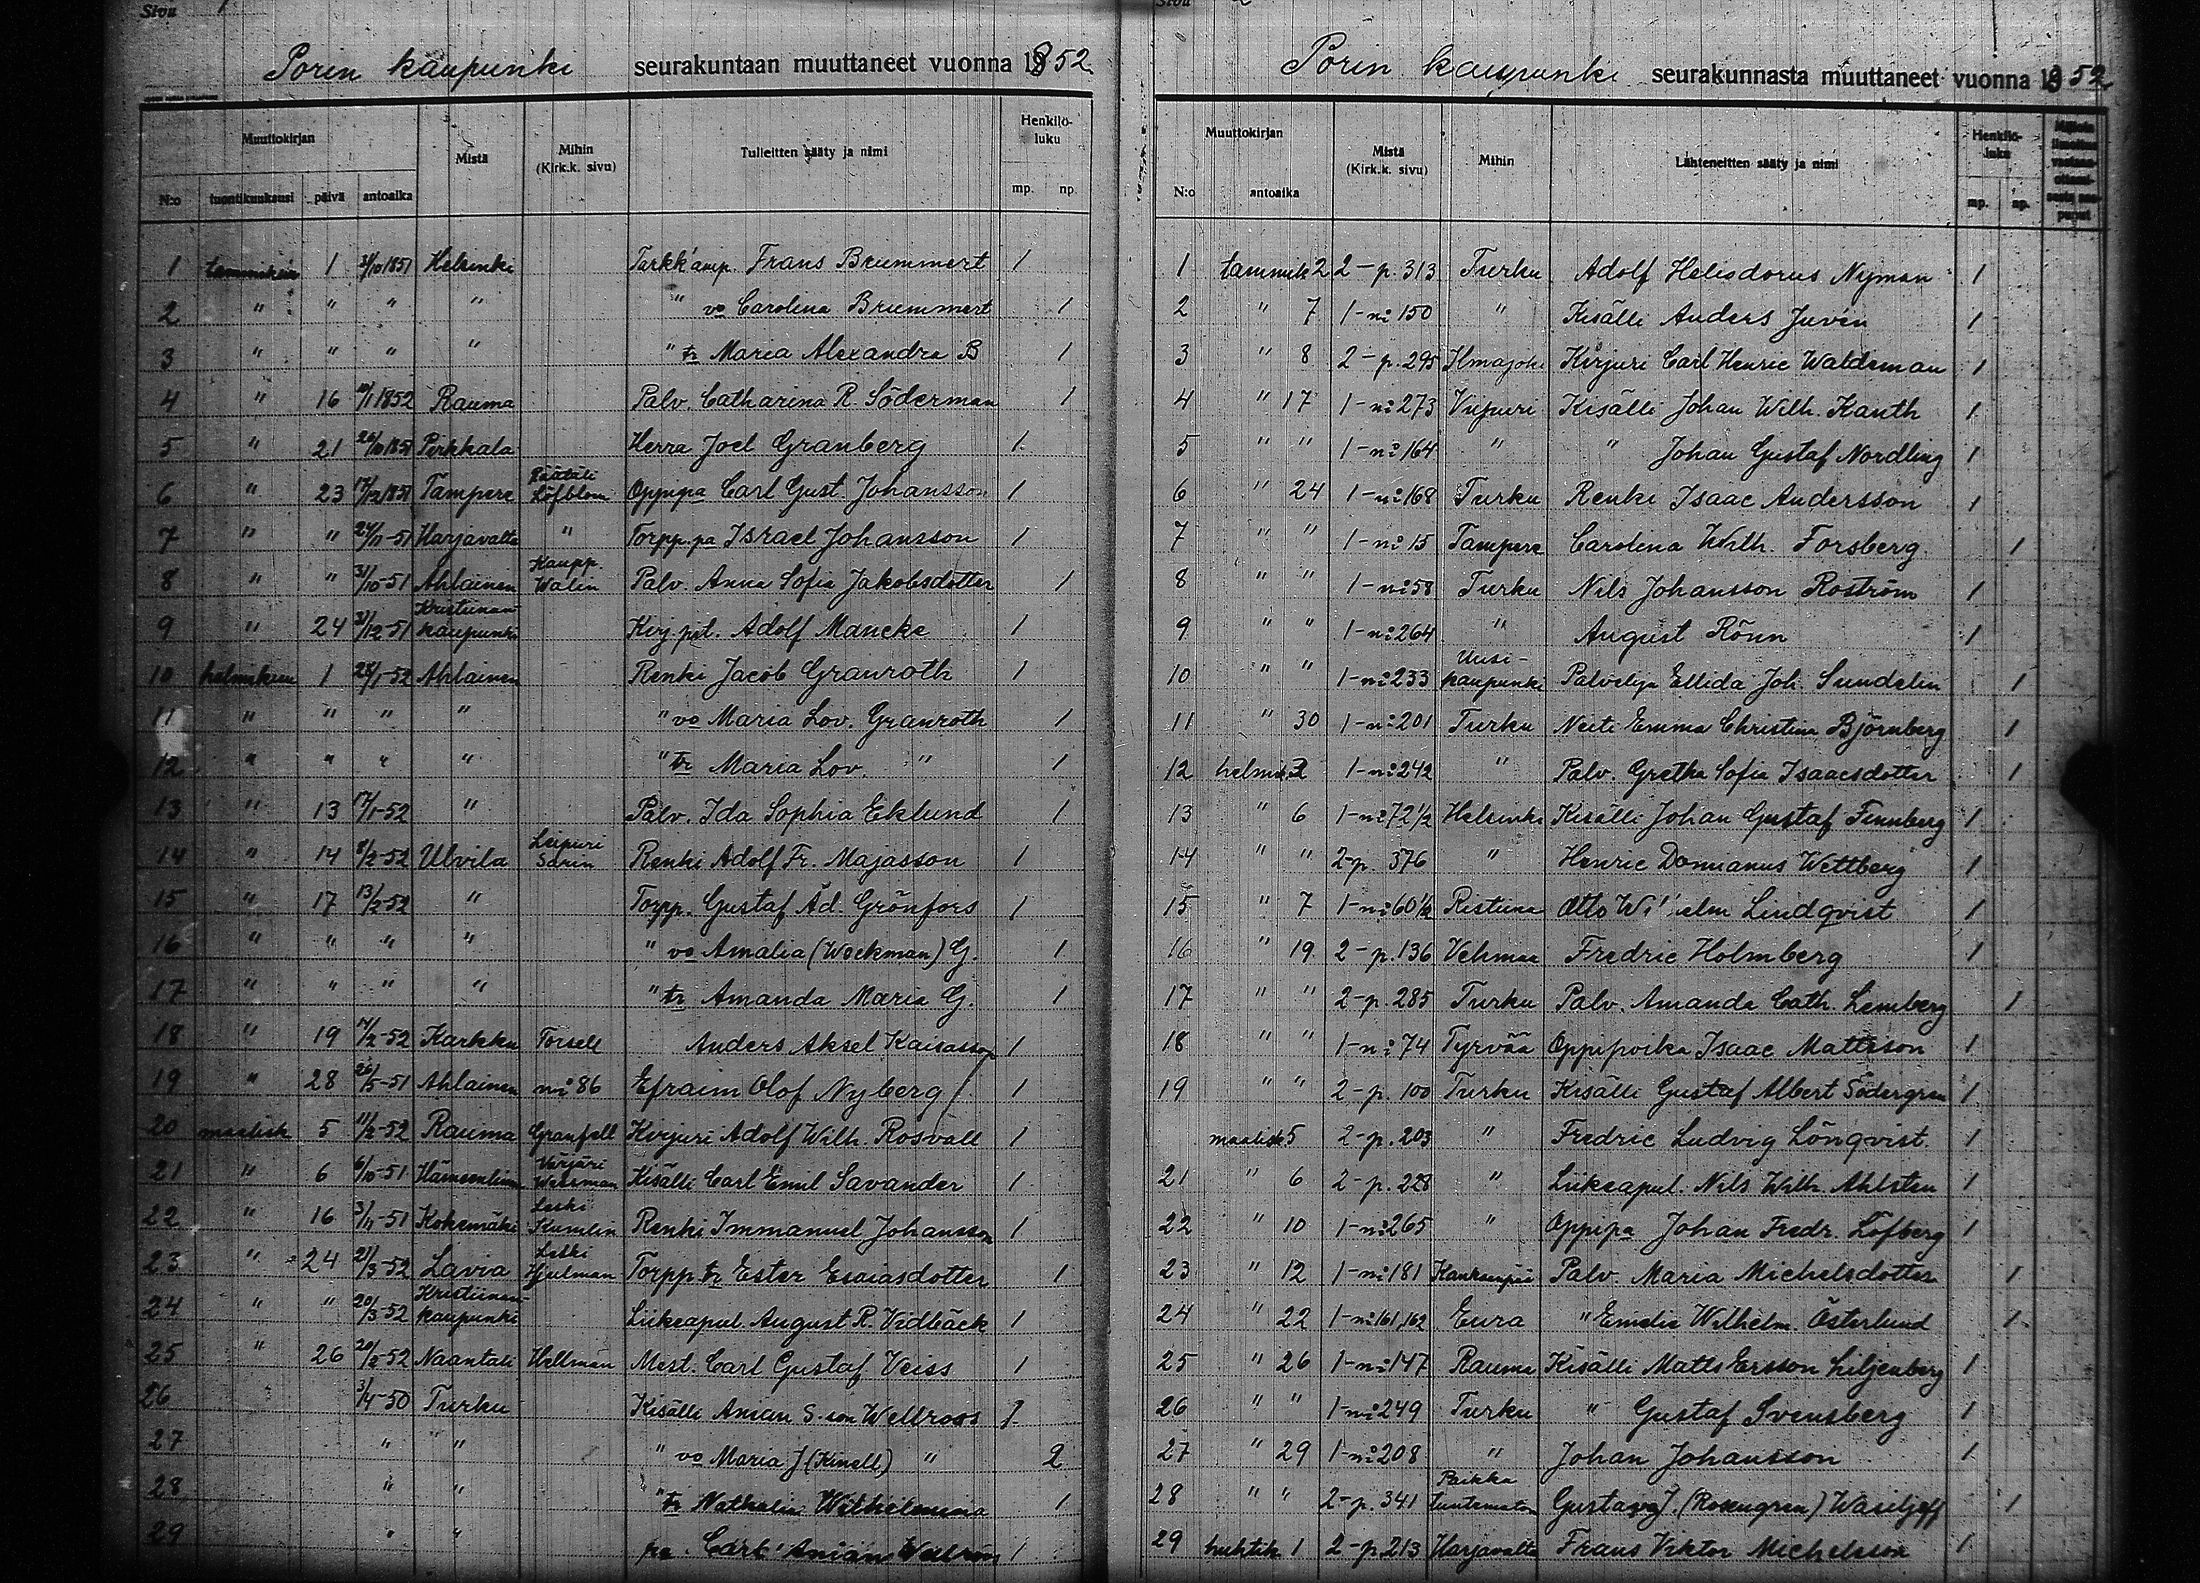 Sivu 1
Porin kaupunki seurakuntaan muuttaneet vuonna 1852.
Muuttokirjan Mistä Mihin (Kirk.k. sivu) Tulleitten sääty ja nimi Henkilö-luku
N:o tuontikuukausi päivä antoaika mp. np.
1 tammikuu 1 2/10 1851 Helsinki Tarkk'amp. Frans Brummert 1
2 " " " " " vo Carolina Brummert 1
3 " " " " " tr Maria Alexandra B 1
4 " 16 10/1 1852 Rauma Palv. Catharina R. Söderman 1
5 " 21 26/10 1851 Pirkkala Herra Joel Granberg 1
6 " 23 17/12 1851 Tampere Räätäli Löfblom Oppipa Carl Gust. Johansson 1
7 " " 24/11-51 Harjavalta " Torpp.pa Israel Johansson 1
8 " " 31/10-51 Ahlainen Kaupp. Walin Palv. Anna Sofia Jakobsdotter 1
9 " 24 31/12-51 Kristiinankaupunki Kirj.pit. Adolf Mancke 1
10 helmikuu 1 28/1-52 Ahlainen Renki Jacob Granroth 1
11 " " " " " vo Maria Lov. Granroth 1
12 " " " " " tr Maria Lov. " 1
13 " 13 17/1-52 " Palv. Ida Sophia Eklund 1
14 " 14 8/2-52 Ulvila Leipuri Sarin Renki Adolf Fr. Majasson 1
15 " 17 13/2-52 " Torpp. Gustaf Ad. Grönfors 1
16 " " " " " vo Amalia (Wockman) G. 1
17 " " " " " tr Amanda Maria G. 1
18 " 19 14/2-52 Karkku Torsell Anders Aksel Kaisasson 1
19 " 28 26/5-51 Ahlainen n:o 86 Efraim Olof Nyberg 1
20 maalisk 5 11/2-52 Rauma Granfell Kirjuri Adolf Wilh. Rosvall 1
21 " 6 6/10-51 Hämeenlinna Värjäri Kisälli Carl Emil Savander 1
22 " 16 3/11-51 Kokemäki Leski Kumlin Renki Immanuel Johansson 1
23 " 24 21/3-52 Lavia Leski Hjulman Torpp tr Ester Esaiasdotter 1
24 " " 20/3-52 Kristiinankaupunki Liikeapul. August R. Vidbäck 1
25 " 26 20/2-52 Naantali Hellman Mest. Carl Gustaf Veiss 1
26 3/4-50 Turku Kisälli Anian S-son Wellroos 1
27 " " " vo Maria J (Kinell) " 2
28 " " " tr Nathalia Wilhelmina 1
29 " " pa Carl Anian Wellroos 1
Sivu 2
Porin kaupunki seurakunnasta muuttaneet vuonna 1852
Muuttokirjan Mistä (Kirk.k. sivu) Mihin Lähteneitten sääty ja nimi Henkilö-luku
N:o antoaika mp. np.
1 tammik 2 2-p. 313 Turku Adolf Heliodorus Nyman 1
2 " 7 1-n:o 150 " Kisälli Anders Juvén 1
3 " 8 2-p. 295 Ilmajoki Kirjuri Carl Henric Waldeman 1
4 " 17 1-n:o 273 Viipuri Kisälli Johan Wilh. Kanth 1
5 " " 1-n:o 164 " " Johan Gustaf Nordling 1
6 " 24 1-n:o 168 Turku Renki Isaac Andersson 1
7 " " 1-n:o 15 Tampere Carolina Wilh. Forsberg 1
8 " " 1-n:o 58 Turku Nils Johansson Roström 1
9 " " 1-n:o 264 " August Rönn 1
10 " " 1-n:o 233 Uusi-kaupunki Palvelija Ellida Joh. Sundelin 1
11 " 30 1-n:o 201 Turku Neiti Emma Christina Björnberg 1
12 helmik 2 1-n:o 242 " Palv. Gretha Sofia Isaacsdotter 1
13 " 6 1-n:o 72 1/2 Helsinki Kisälli Johan Gustaf Finnberg 1
14 " " 2-p. 376 " Henric Domianus Wettberg 1
15 " 7 1-n:o 60 1/2 Ristiina Otto Wilhelm Lindqvist 1
16 " 19 2-p. 136 Vehmaa Fredric Holmberg 1
17 " " 2-p. 285 Turku Palv. Amanda Cath. Lemberg 1
18 " " 1-n:o 74 Tyrvää Oppipoika Isaac Mattsson 1
19 " " 2-p. 100 Turku Kisälli Gustaf Albert Södergren 1
maalisk 5 2-p. 203 " Fredric Ludvig Lönqvist 1
21 " 6 2-p. 228 " Liikeapul. Nils Wilh. Ahlsten 1
22 " 10 1-n:o 265 " Oppipa Johan Fredr. Löfberg 1
23 " 12 1-n:o 181 Kankaanpää Palv. Maria Michelsdotter 1
24 " 22 1-n:o 161,162 Eura " Emelie Wilhelm. Österlund 1
25 " 26 1-n:o 147 Rauma Kisälli Matts Ersson Liljenberg 1
26 " " 1-n:o 249 Turku " Gustaf Svensberg 1
27 " 29 1-n:o 208 " Johan Johansson 1
28 " " 2-p. 341 Paikka tuntematon Gustava J. (Rosengren) Wasiljeff 1
29 huhtik 1 2-p. 213 Harjavalta Frans Viktor Michelsson 1